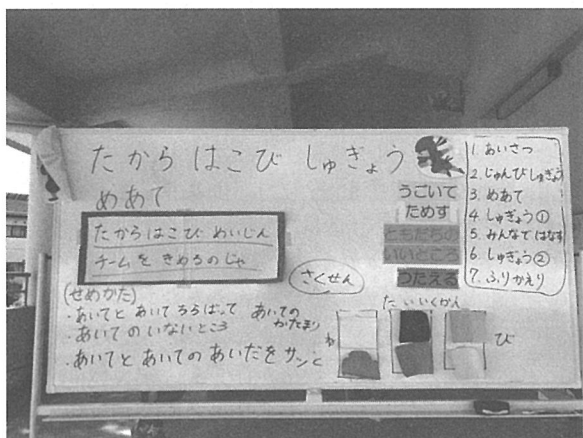 たからはこび しゅぎょう
めあて
たからはこび めいじん
チームを きめるのじゃ
うごいて
ためす
ともだちの
いいところ
つたえる
1. あいさつ
2. じゅんびしゅぎょう
3. めあて
4. しゅぎょう①
5. みんなではなす
6. しゅぎょう②
7. ふりかえり
さくせん
(せめかた)
・あいてと あいて あいての
かたまり
・あいての いないところ
・あいてと あいての あいだを サッと
たいいくかん
び